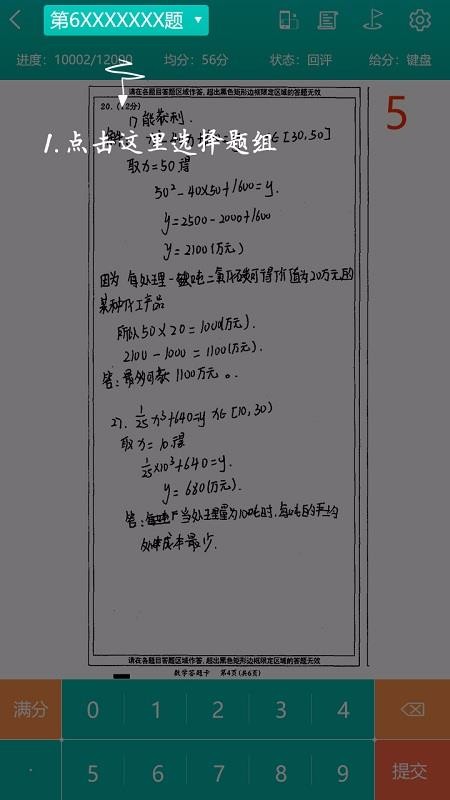 第6XXXXXXX题
进度：10002/12000 均分：56分 状态：回评 给分：键盘
请在各题目答题区域作答，超出黑色矩形边框限定区域的答题无效
20. (12分)
5
1) 能获利.
∈[30,50]
1.点击这里选择题组
取x=50.得
50²-40×50+1600=y.
y=2500-2000+1600
y=2100(万元)
因为 每处理一吨二氧化碳可得价值为20万元的
某种化工产品
所以 50×20=1000(万元).
2100-1000=1100(万元).
答：最多可获1100万元。
27. 1/25 x³+640=y x∈[10,30)
取x=10.得
1/25×10³+640=y.
y=680(万元).
答：当处理量为10吨时，每吨的平均
处理成本最少.
请在各题目答题区域作答，超出黑色矩形边框限定区域的答题无效
数学答题卡 第4页(共6页)
满分 0 1 2 3 4
. 5 6 7 8 9 提交